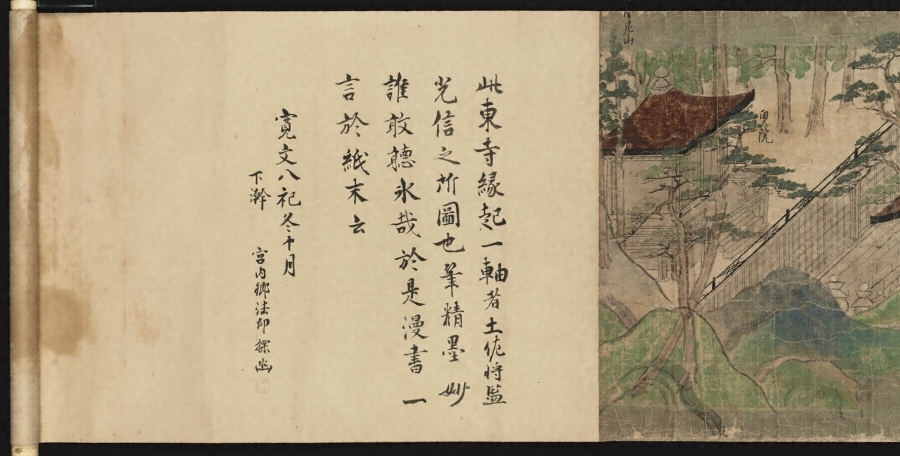 奥院
此東寺縁起一軸者土佐将監
光信之所圖也筆精墨妙
誰敢聽氷哉於是漫書一
言於紙末云
寛文八祀冬十月
下澣
宮内卿法印探幽